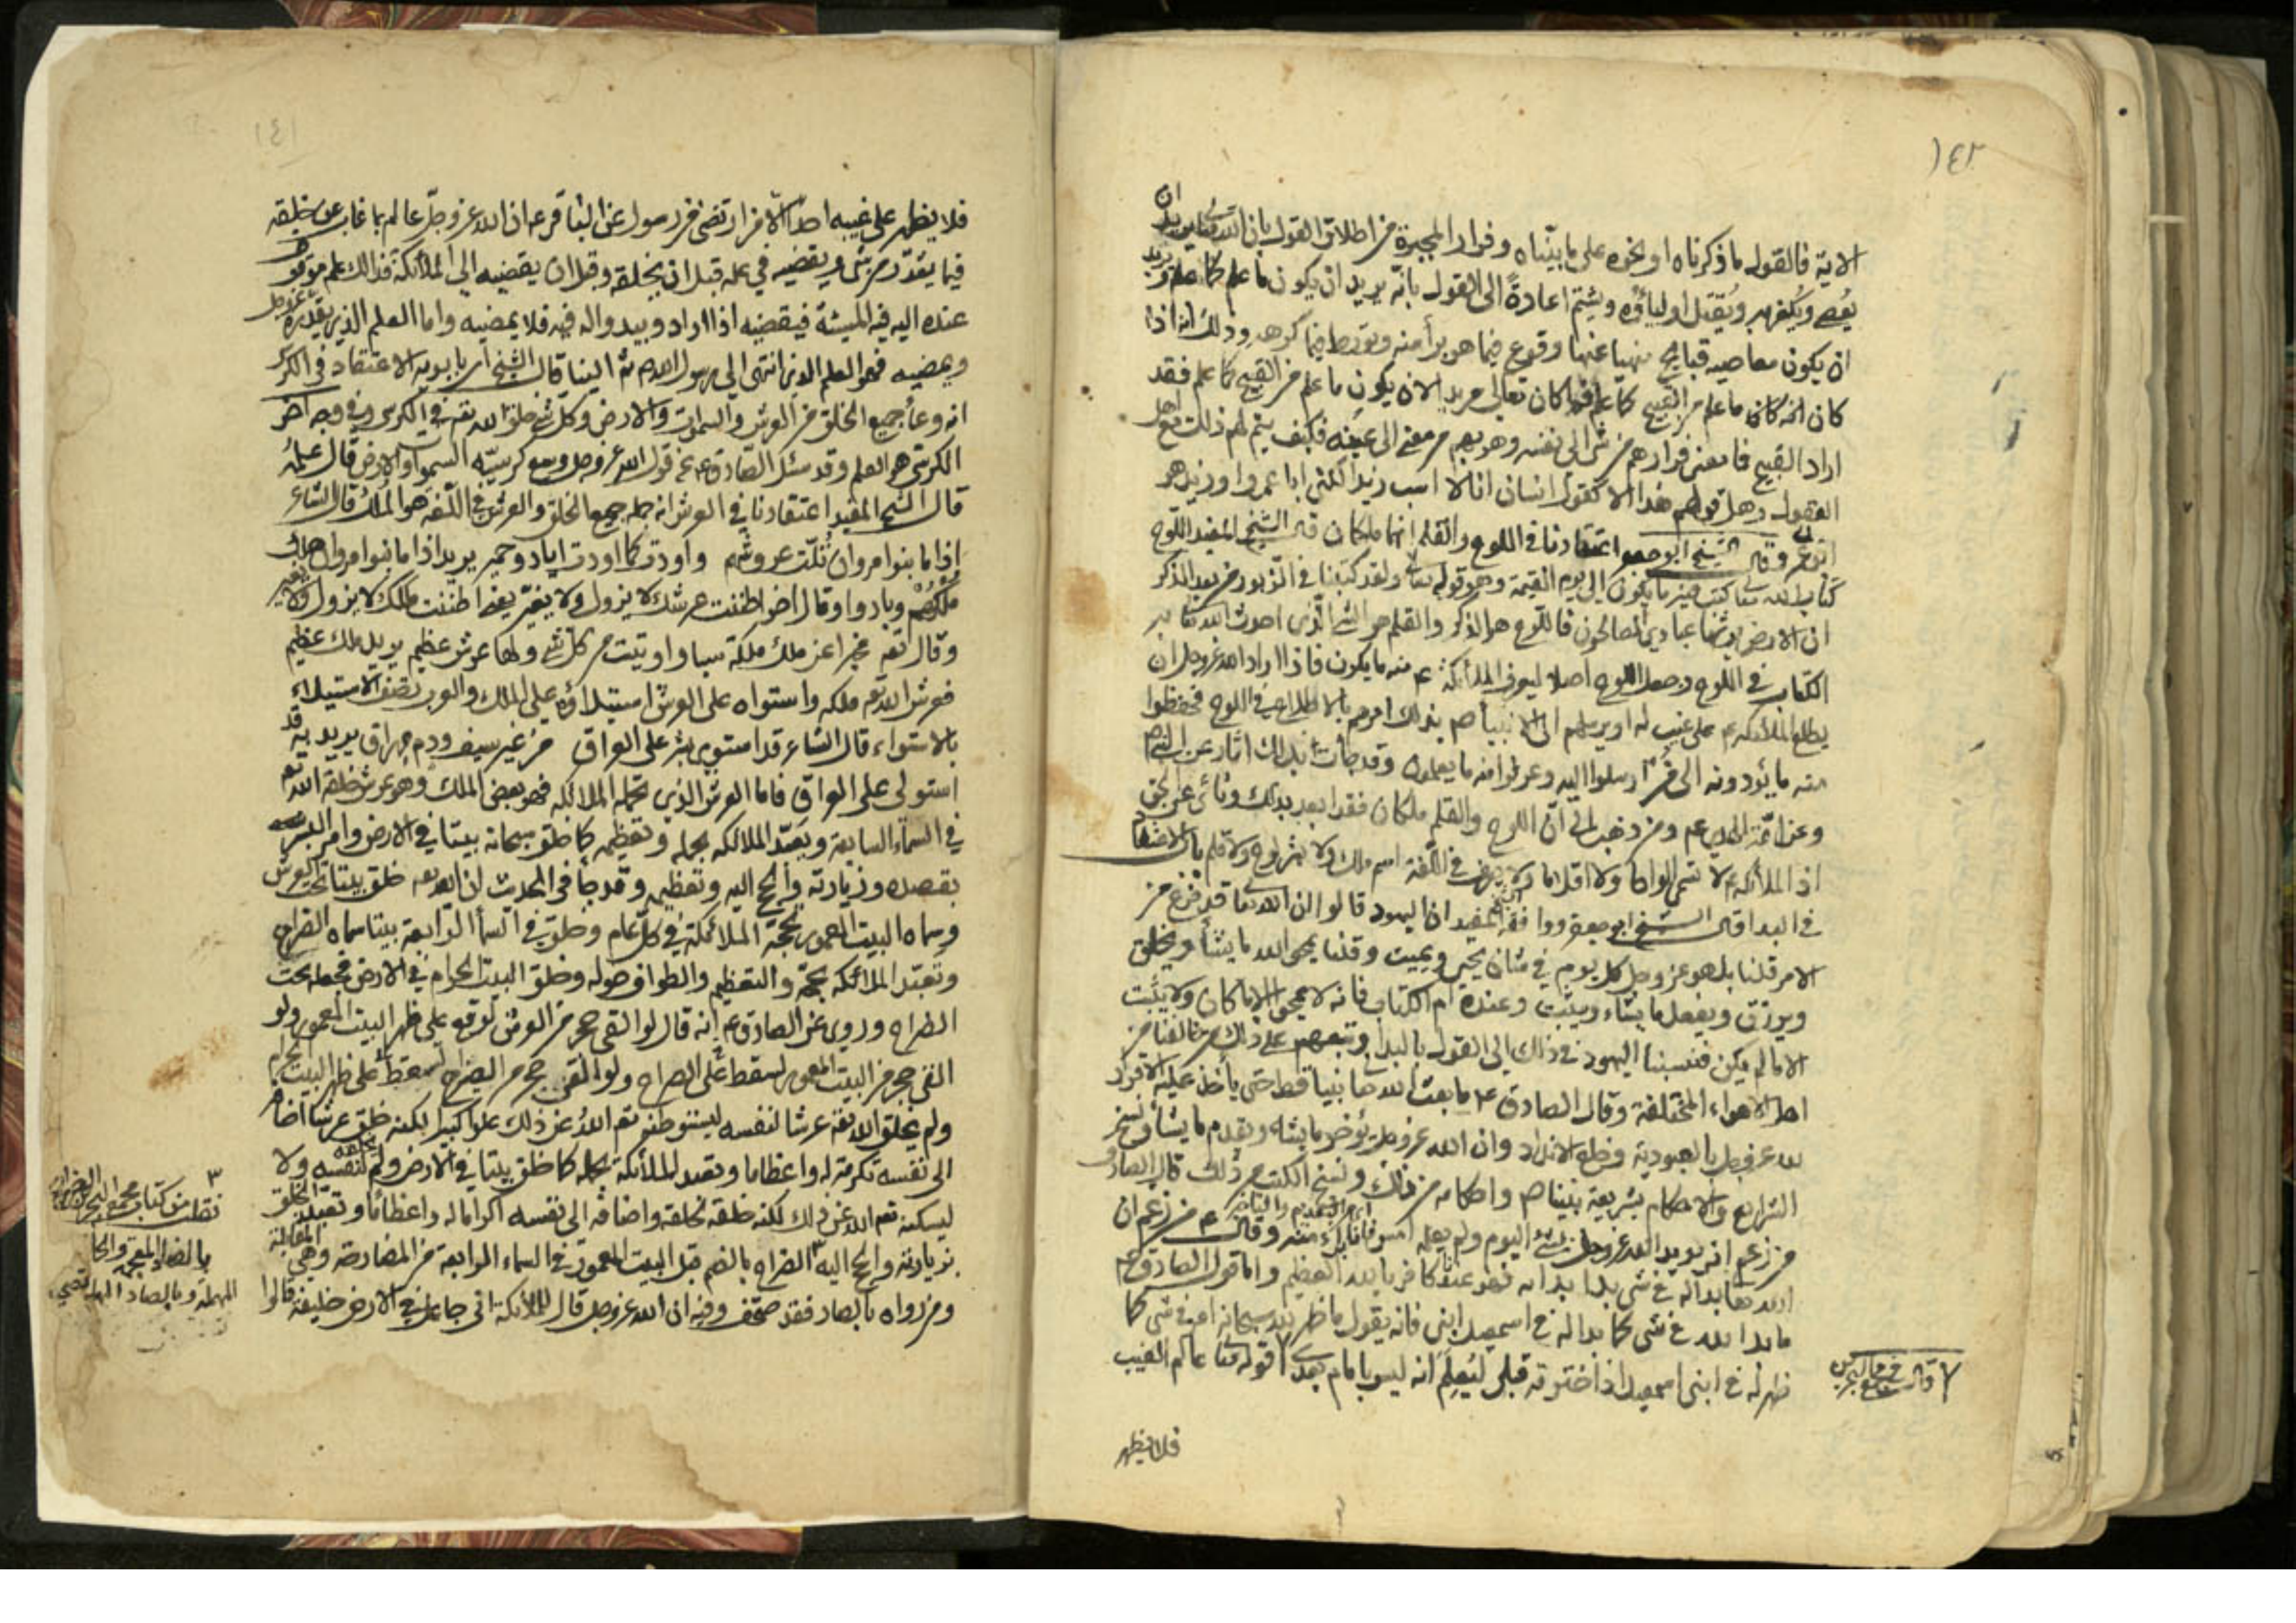 ١٤٢
الاية فالقول ما ذكرناه او نحوه على ما بيّناه وفرار المجبرة من اطلاق القول بان الله تعالى يريد ان
يُعصى ويُكفر به ويُقتل اولياؤه ويشتم اعادةً الى القول بانّه يريد ان يكون ما علم كما علم ويريد
ان يكون معاصيه قبايح منهيا عنها وقوع فيما هو برأ منه وتورط فيما كرهه وذلك انه اذا
كان ما علم من القبيح كما علم وكان تعالى مريدا لان يكون ما علم من القبيح كما علم فقد
اراد القبيح فما معنى فرارهم من شئ الى نفسه وهربهم من معنى الى عينه فكيف يتم لهم ذلك مع اهل
العقول وهل قولهم هذا الا كقول انسان انا لا اسب زيدا لكنى ابا عمرو او زيد هو
ابو عمرو وقال الشيخ ابو جعفر اعتقادنا في اللوح والقلم انهما ملكان قال الشيخ المفيد اللوح
كتاب الله تعالى كتب فيه ما يكون الى يوم القيمة وهو قوله تعالى ولقد كتبنا في الزبور من بعد الذكر
ان الارض يرثها عبادي الصالحون فاللوح هو الذكر والقلم هو الشئ الّذي احدث الله تعالى به
الكتاب في اللوح وجعل اللوح اصلا ليعرف الملائكة ع منه ما يكون فاذا اراد الله عزوجل ان
يطلع الملائكة ع على غيب له او يرسلهم الى الانبياء ص بذلك امرهم بالاطلاع في اللوح فحفظوا
منه ما يؤدونه الى من ارسلوا اليه وعرفوا منه ما يعملون وقد جاءت بذلك اثار عن النبي ص
وعن ائمّة الهدى عم ومن ذهب الى انّ اللوح والقلم ملكان فقد ابعد بذلك ونأى عن الحق
اذ الملائكة ع لا تسمى الواحا ولا اقلاما ولا يعرف في اللّغة اسم ملك ولا بشر لوح ولا قلم باب الاعتقاد
في البدا قال الشيخ ابو جعفر ووافقه الشيخ المفيد ان اليهود قالوا ان الله تعالى قد فرغ من
الامر قلنا بل هو عز وجل كل يوم في شان يحيى ويميت وقلنا يمحو الله ما يشأ ويخلق
ويرزق ويفعل ما يشاء ويثبت وعنده ام الكتاب فانه لا يمحو الا ما كان ولا يثبت
الا ما لم يكن فنسبنا اليهود في ذلك الى القول بالبدا وتبعهم على ذلك من خالفنا من
اهل الاهواء المختلفة وقال الصادق ع ما بعث الله تعالى نبيا قط حتى يأخذ عليه الاقرار
لله عز وجل بالعبودية وخلع الانداد وان الله عز وجل يؤخر ما يشاء ويقدم ما يشأ ونسخ
الشرايع والاحكام بشريعة نبينا ص واحكامه من ذلك ونسخ الكتب من ذلك قال الصادق
من زعم ان يبدو لله عز وجل في شئ اليوم ولم يعلمه امس فانا ابرء منه وقال ع من زعم ان
الله تعالى بدا له في شئ بدا ندامه فهو عندنا كافر بالله العظيم واما قول الصادق عم
ما بدا لله في شئ كما بدا له في اسمعيل ابنى فانه يقول ما ظهر لله سبحانه امر في شئ كما
ظهر له في ابنى اسمعيل اذ اخترمه قبلى ليُعلم انه ليس بامام بعدى قوله تعالى عالم الغيب
فلا يظهر
٧ قال في مجمع البحرين
١٤١
فلا يظهر على غيبه احدا الا من ارتضى من رسول عن الباقر عم ان الله عز وجلّ عالم بما غاب عن خلقه
فيما يقدّر من شئ ويقضيه في علمه قبل ان يخلقه وقبل ان يقضيه الى الملائكة فذلك علم موقوف
عنده اليه فيه المشيئة فيقضيه اذا اراد ويبدو له فيه فلا يمضيه واما العلم الذي يقدّره عز وجل
ويمضيه فهو العلم الذي انتهى الى رسول الله ص ثم الينا قال الشيخ ابن بابويه الاعتقاد في الكرسى
انه وعاء جميع الخلق من العرش والسموات والارض وكل شئ خلق الله تعم في الكرسي وفي وجه اخر
الكرسي هو العلم وقد سئل الصادق ع عن قول الله عز وجل وسع كرسيّه السموات والارض قال علمه
قال الشيخ المفيد اعتقادنا في العرش انه جملة جميع الخلق والعرش في اللّغة هو الملك قال الشاعر
اذا ما بنوا مروان ثُلّت عروشهم واودت كما اودت اياد وحمير يريد اذا ما بنوا مروان هلك
ملكهم وبادوا وقال اخر اظننت عرشك لا يزول ولا يغيّر يعني اظننت ملكك لا يزول ولا يغير
وقال تعم مخبرا عن ملك ملكة سبا واوتيت من كل شئ ولها عرش عظيم يريد ملك عظيم
فعرش الله تعم ملكه واستواه على العرش استيلاؤه على الملك والعرب تصف الاستيلاء
بالاستواء قال الشاعر قد استوى بشر على العراق من غير سيف ودم مهراق يريد به قد
استولى على العراق فاما العرش الذي تحمله الملائكة فهو بعض الملك وهو عرش خلقه الله تعم
في السماء السابعة وتعبّد الملائكة بحمله وتعظيمه كما خلق سبحانه بيتا في الارض وامر البشر
بقصده وزيارته والحج اليه وتعظيمه وقد جأ في الحديث ان الله تعم خلق بيتا تحت العرش
وسماه البيت المعمور تحجّه الملائكة في كلّ عام وخلق في السمأ الرّابعة بيتا سماه الضراح
وتعبّد الملائكة بحجّه والتعظيم والطواف حوله وخلق البيت الحرام في الارض فجعله تحت
الضراح وروى عن الصادق ع انه قال لو القى حجر من العرش لوقع على ظهر البيت المعمور ولو
القى حجر من البيت المعمور لسقط على الضراح ولو القى حجر من الضراح لسقط على ظهر البيت الحرام
ولم يخلق الله تعم عرشا لنفسه ليستوطنه تعم اللهُ عن ذلك علوا كبيرا لكنه خلق عرشا اضافه
الى نفسه تكرمة له واعظاما وتعبد الملائكة بحمله كما خلق بيتا في الارض ولم يخلقه لنفسه ولا
ليسكنه تعم الله عن ذلك لكنه خلقه لخلقه واضافه الى نفسه اكراما له واعظاما وتعبد الخلق
بزيارته والحج اليه الضراح بالضم قيل البيت المعمور في السماء الرابعة من المضارحة وهي المقابلة
ومن رواه بالصاد فقد صحّف وفيه ان الله عز وجل قال للملائكة انى جاعل في الارض خليفة قالوا
٣
نقلت من كتاب مجمع البحرين الضراح
بالضاد المعجمة والحا
المهملة وبالصاد المهملة تصحيف